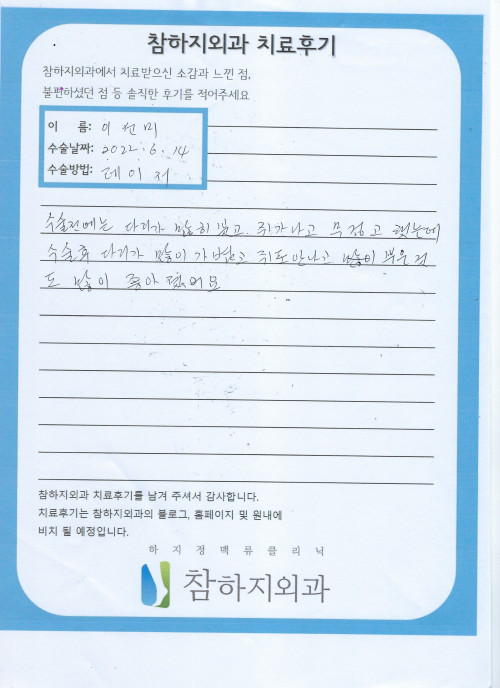 참하지외과 치료후기
참하지외과에서 치료받으신 소감과 느낀 점,
불편하셨던 점 등 솔직한 후기를 적어주세요
이 름: 이선미
수술날짜: 2022. 6. 14
수술방법: 레이저
수술전에는 다리가 많이 붓고, 쥐가나고 무겁고 했는데
수술후 다리가 많이 가볍고 쥐도 안나고 많이 부은것
도 많이 좋아졌어요
참하지외과 치료후기를 남겨 주셔서 감사합니다.
치료후기는 참하지외과의 블로그, 홈페이지 및 원내에
비치 될 예정입니다.
하지정맥류클리닉
참하지외과